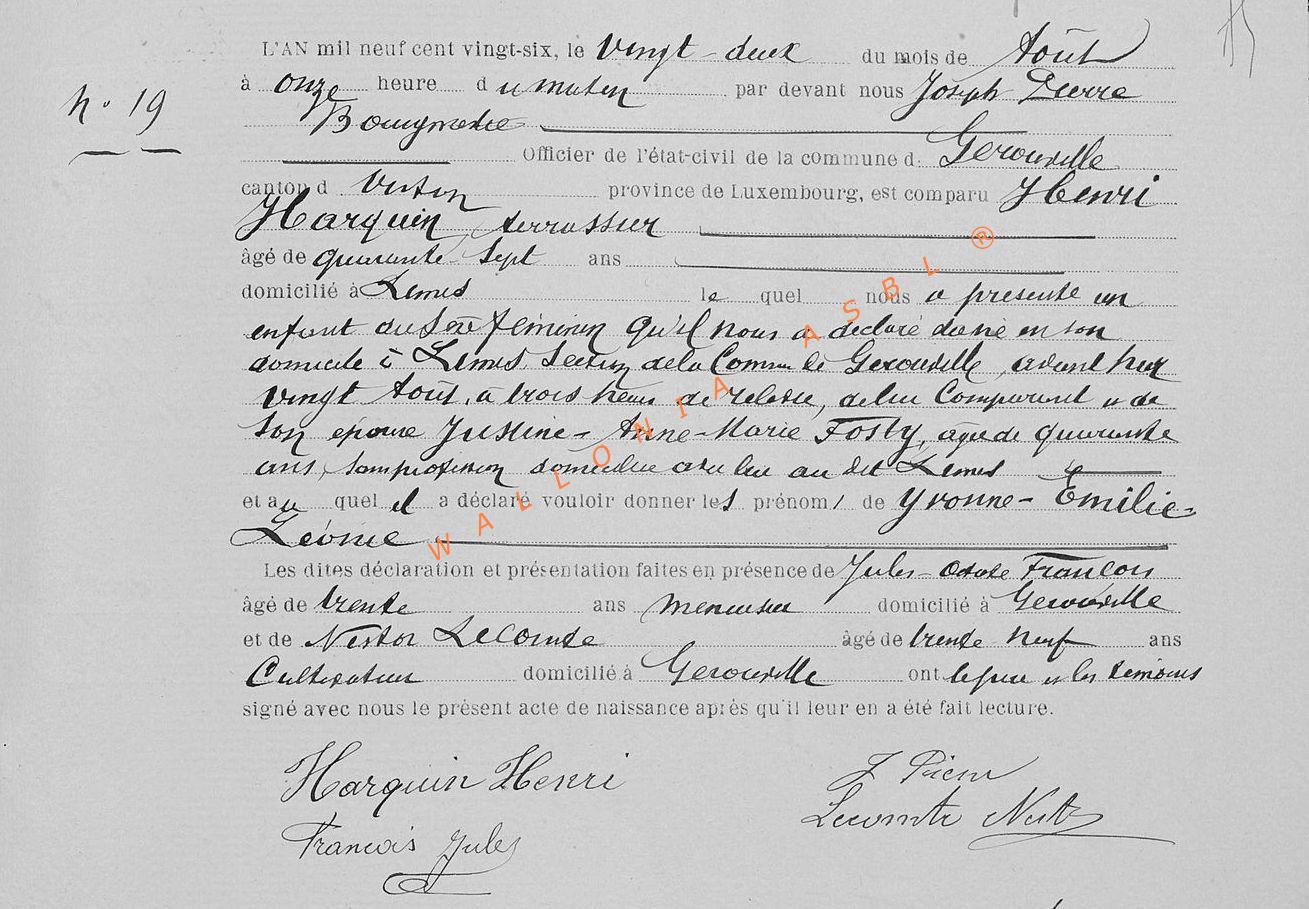 L'AN mil neuf cent vingt-six, le vingt-deux du mois de Août
à onze heure du matin par devant nous Joseph Pierre
N° 19
Officier de l'état-civil de la commune d. Gerouville
canton d Virton province de Luxembourg, est comparu Henri
Harquin, terrassier
âgé de quarante-sept ans
domicilié à Limes lequel nous a présenté un
enfant du sexe féminin qu'il nous a déclaré être né en son
domicile à Limes, Section de la Commune de Gerouville, avant hier
vingt Août, à trois heures de relevée, de lui Comparant et de
son épouse Justine-Anne-Marie Fosty, âgée de quarante
ans, sans profession domiciliée au lieu dit Limes
et au quel il a déclaré vouloir donner les prénoms de Yvonne-Emilie-
Léonie
Les dites déclaration et présentation faites en présence de Jules- François
âgé de trente ans menuisier domicilié à Gerouville
et de Nestor Lecomte âgé de trente neuf ans
Cultivateur domicilié à Gerouville ont le père et les témoins
signé avec nous le présent acte de naissance après qu'il leur en a été fait lecture.
Harquin Henri J Pierre
François Jules Lecomte Nestor
WALLONIA ASBL ®